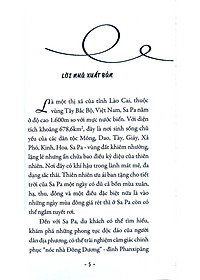 LỜI NHÀ XUẤT BẢN
Là một thị xã của tỉnh Lào Cai, thuộc
vùng Tây Bắc Bộ, Việt Nam, Sa Pa nằm
ở độ cao 1.600m so với mực nước biển. Với diện
tích khoảng 678,6km², đây là nơi sinh sống chủ
yếu của các dân tộc Mông, Dao, Tày, Giáy, Xá
Phó, Kinh, Hoa. Sa Pa - vùng đất khiêm nhường,
lặng lẽ nhưng ẩn chứa bao điều kỳ diệu của thiên
nhiên. Nơi đây có khí hậu trong lành mát mẻ, đa
dạng sắc thái. Thiên nhiên ưu ái ban tặng cho tiết
trời của Sa Pa một ngày có đủ cả bốn mùa xuân,
hạ, thu, đông và một điều đặc biệt nữa là vào
những ngày mùa đông giá rét thì ở Sa Pa còn có
thể ngắm tuyết rơi.
Đến với Sa Pa, du khách có thể tìm hiểu,
khám phá những phong tục độc đáo của người
dân địa phương, có thể trải nghiệm cảm giác chinh
phục "nóc nhà Đông Dương" - đỉnh Phanxipăng
- 5 -